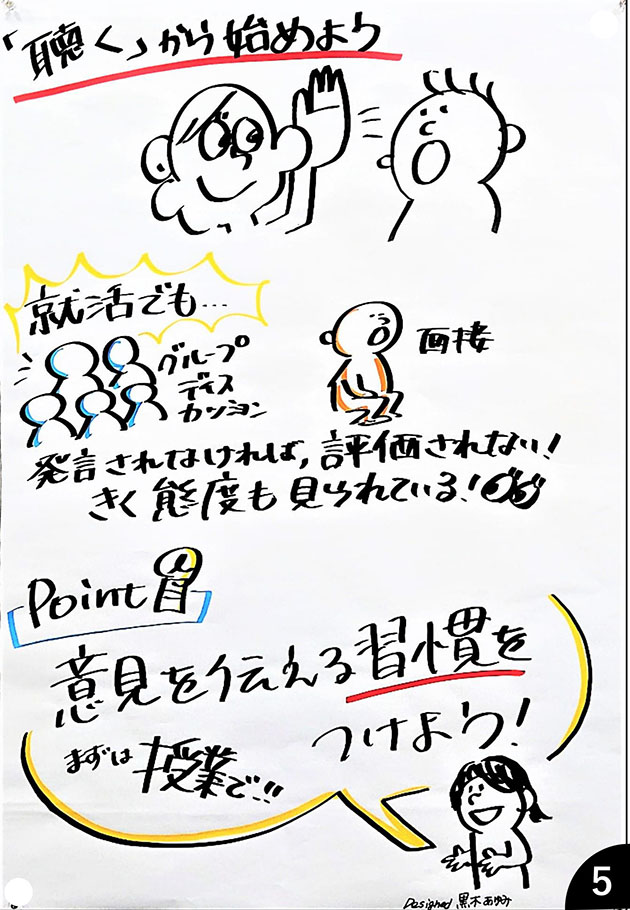 「聴く」から始めよう
就活でも…
グループ
ディス
カッション
面接
発言されなければ,評価されない!
きく態度も見られている!
Point
意見を伝える習慣を
つけよう!
まずは授業で!!
Designed 黒木あゆみ
5